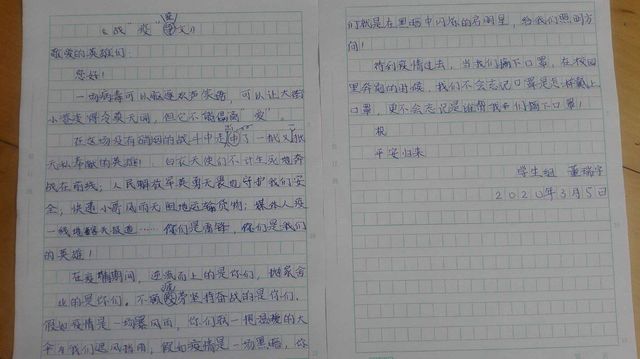 《战"疫"英文》
敬爱的英雄们:
您好!
一场病毒可以驱逐欢声笑语,可以让大街
小巷变得冷寂无间,但它不能隔离"爱"。
在这场没有硝烟的战斗中走了一批又一批
无私奉献的英雄! 白衣天使们不计生死地奋
战在前线;人民解放军英勇无畏地守护我们安
全;快递小哥风雨无阻地运输货物;媒体人夜
一线地聊天报道……你们是雷锋,你们是我们
的英雄!
在疫情期间,逆流而上的是你们,抛家舍
业的是你们。不顾疲劳坚持奋战的是你们。
假如疫情是一场暴风雨,你们就一把温暖的大
伞为我们遮风挡雨,假如疫情是一场黑暗,你
们就是在黑暗中闪烁的启明星,给我们照明方
向!
待到疫情过去,当我们摘下口罩,在校园
里奔跑的时候,我们不会忘记口罩是怎样戴上
口罩,更不会忘记是谁帮我们摘下口罩!
祝
平安归来
学生组 董瑞宇
2020年3月5日